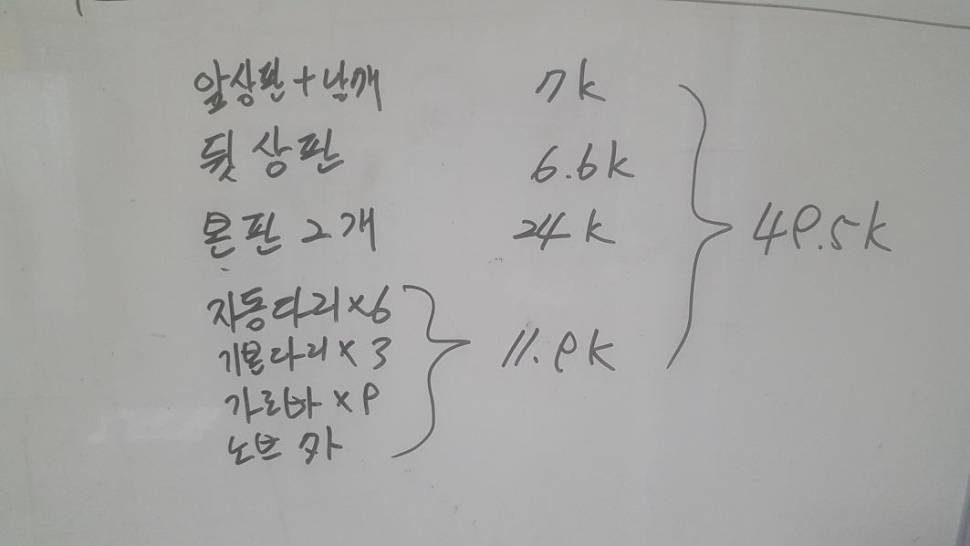 앞상판+날개 7k
뒷상판 6.6k
본판 2개 24k
49.5k
자동다리×6
기본다리×3
11.9k
가로바×9
노브